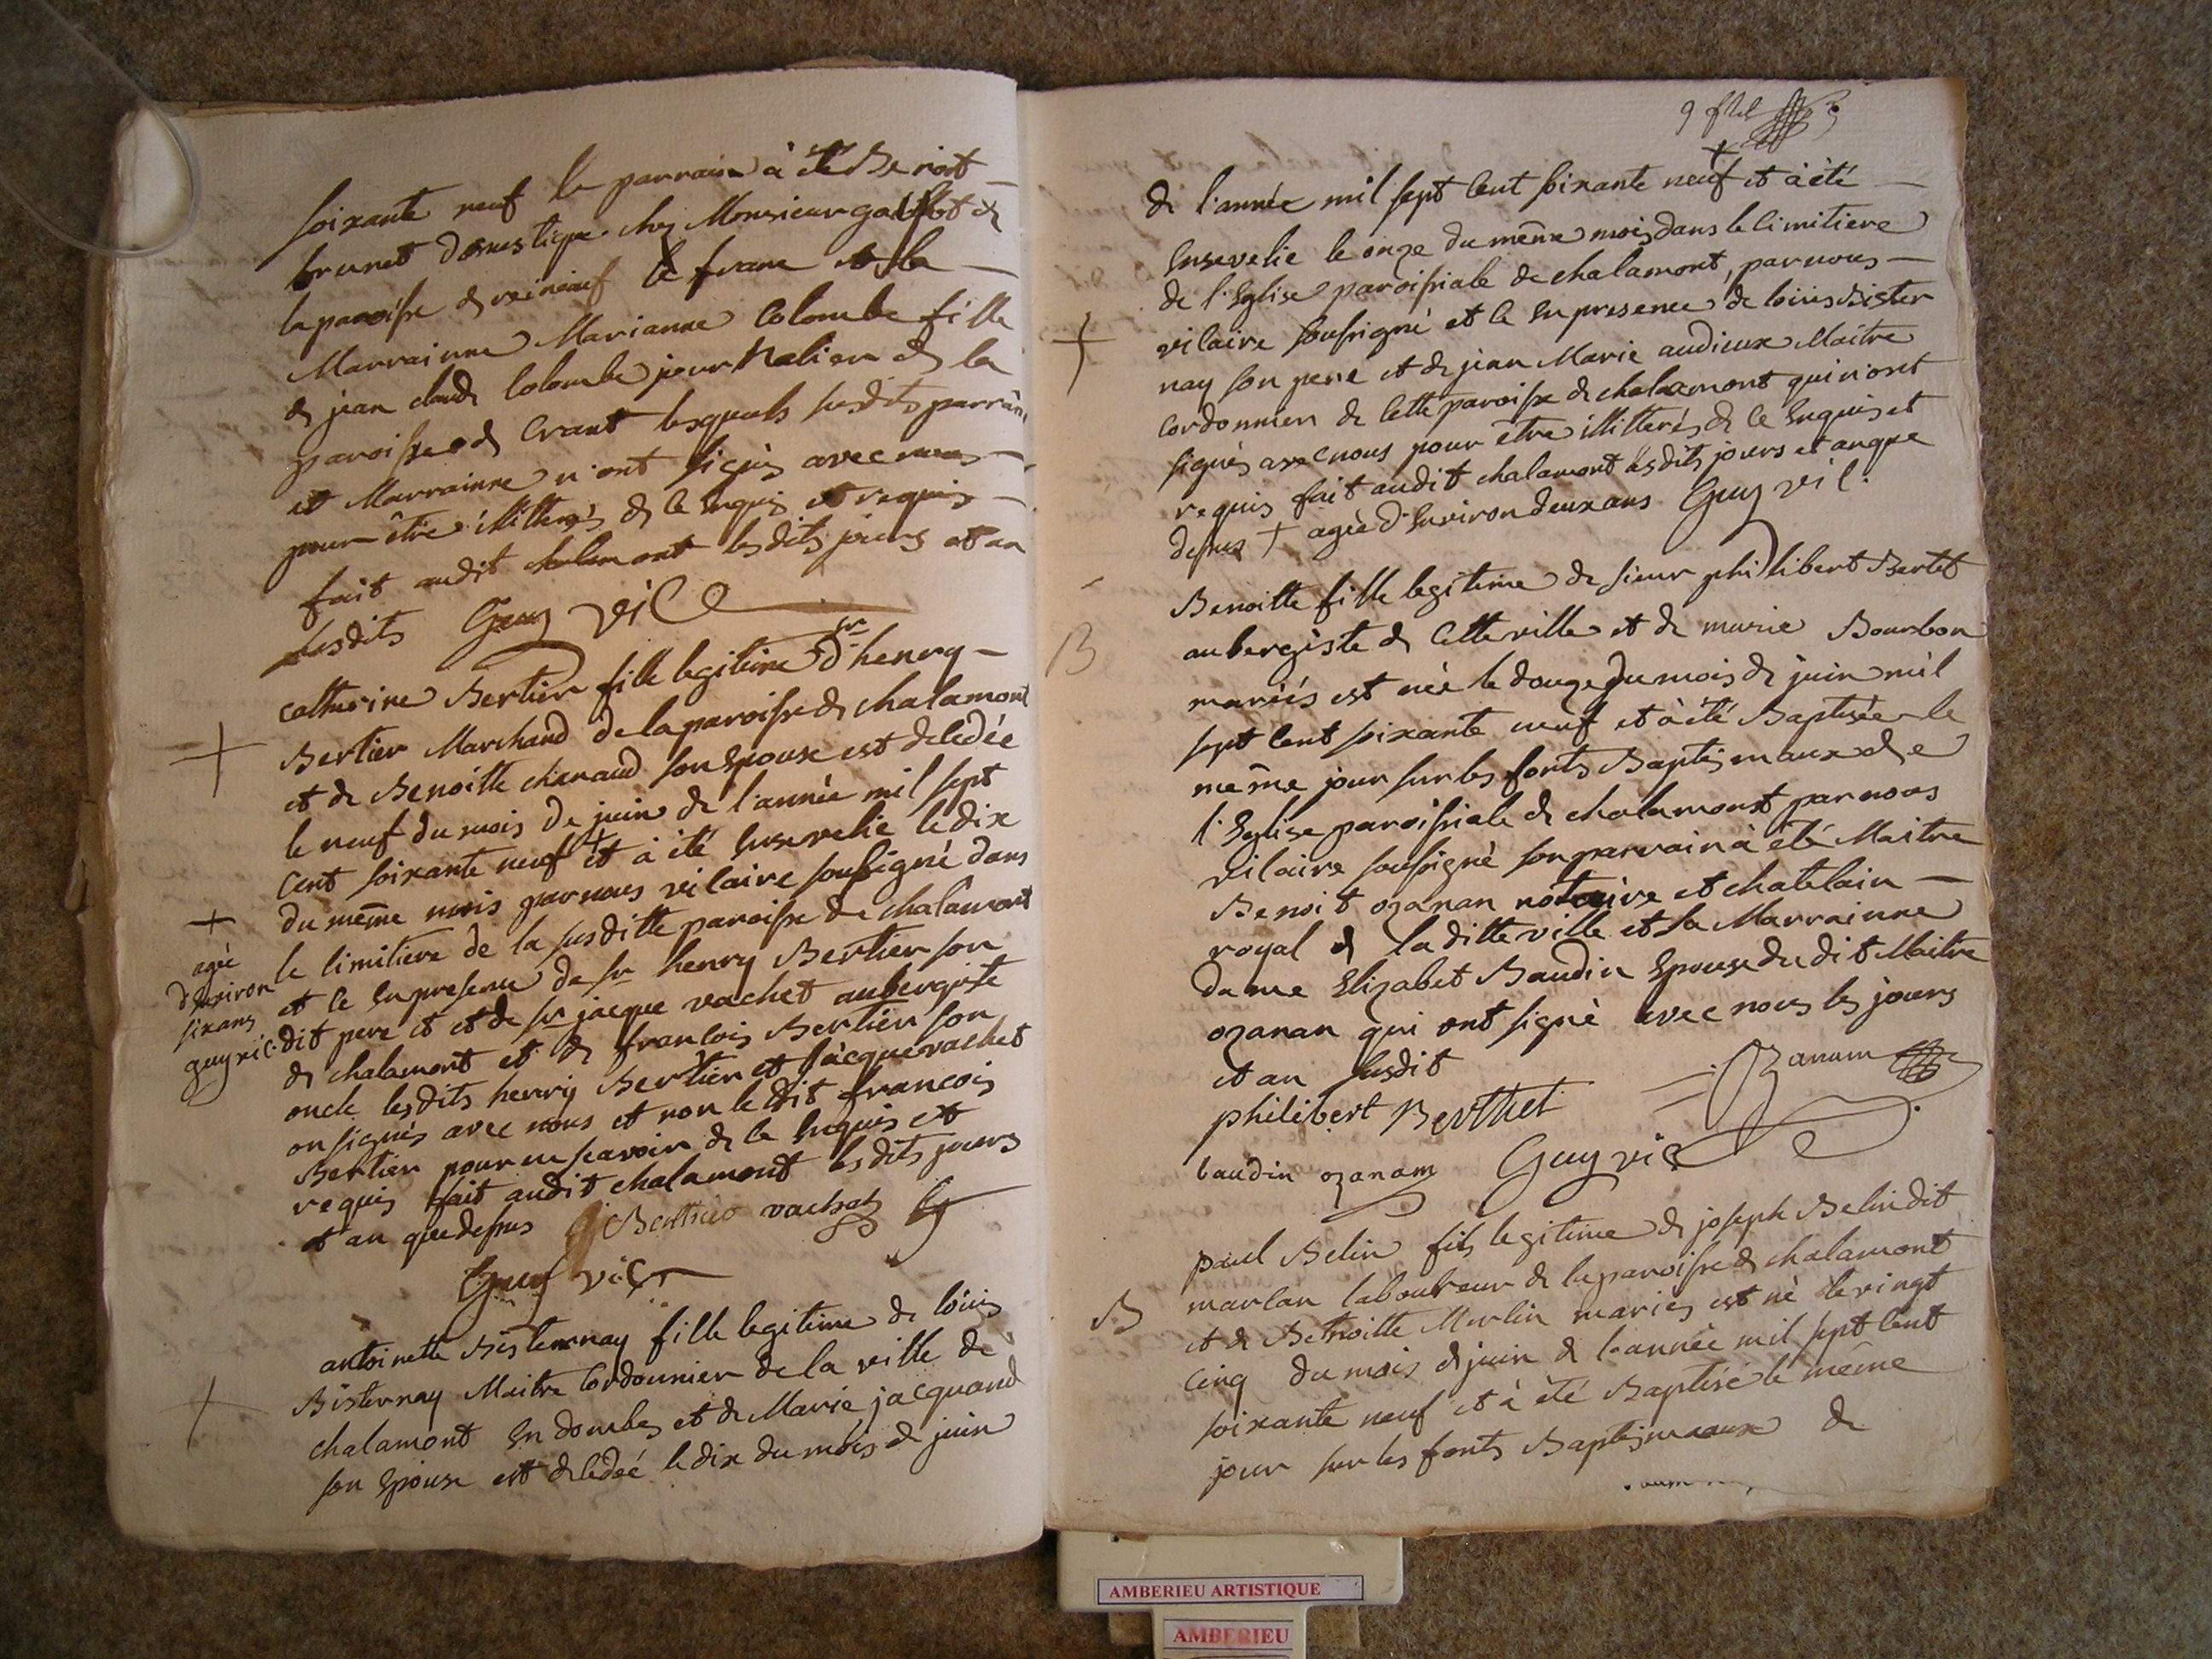 soixante neuf le parrain à été Benoit
brunet domestique chez Monsieur de
la paroisse de le franc et la
Marrainne Marianne Colombe fille
de jean claude Colombe journalier de la
paroisse de Crant lesquels susdits parrain
et Marrainne n'ont signés avec nous
pour être illiterés de ce enquis et requis
fait audit chalamont lesdits jours et an
susdits Guy vic
catherine Bertier fille legitime d' sr henry
Bertier Marchand de la paroisse de chalamont
et de Benoitte chanaud son Epouse est décedée
le neuf du mois de juin de l'année mil sept
cent soixante neuf + et à été Ensevelie le dix
du même mois par nous vicaire soussigné dans
le cimitiere de la susditte paroisse de chalamont
et ce En presence de sr henry Bertier son
dit pere et et de sr jacque vachet aubergiste
de chalamont et de francois Bertier son
oncle lesdits henry Bertier et jacque vachet
on signés avec nous et non le dit francois
Bertier pour ne scavoir de ce Enquis et
requis fait audit chalamont lesdits jours
et an que dessus Berthier vachet
Guy vic
+
agée
d'Environ
six ans
guy vic.
antoinette Bisternay fille legitime de loüis
Bisternay Maitre Cordonnier de la ville de
chalamont En dombes et de Marie jacquand
son Epouse est décedée le dix du mois de juin
9
de l'année mil sept cent soixante neuf + et à été
Ensevelie le onze du même mois dans le cimitiere
de l'Eglise paroissiale de chalamont, par nous
vicaire soussigné et ce En presence de loüis Bister
nay son pere et de jean Marie audieux Maitre
Cordonnier de cette paroisse de chalamont qui n'ont
signés avec nous pour être illiterés de ce Enquis et
requis fait audit chalamont lesdits jours et an que
dessus + agée d'Environ deux ans Guy vic.
B
Benoitte fille legitime de sieur philibert Bertet
aubergiste de cette ville et de marie Bourbon
mariés est née le douze du mois de juin mil
sept cent soixante neuf et à été Baptisée le
même jour sur les fonts Baptismaux de
l'Eglise paroissiale de chalamont par nous
vicaire soussigné son parrain à été Maitre
Benoit ozanan notaire et chatelain
royal de la ditte ville et sa Marrainne
dame Elizabet Baudin Epouse du dit Maitre
ozanan qui ont signé avec nous les jours
et an susdit
philibert Berthet Ozanam
baudin ozanam Guy vic
B
paul Belin fils legitime de joseph Belin dit
marlan laboureur de la paroisse de chalamont
et de Benoitte Merlin mariés est né le vingt
cinq du mois de juin de l'année mil sept cent
soixante neuf et à été Baptisé le même
jour sur les fonts Baptismaux de
AMBERIEU ARTISTIQUE
AMBERIEU